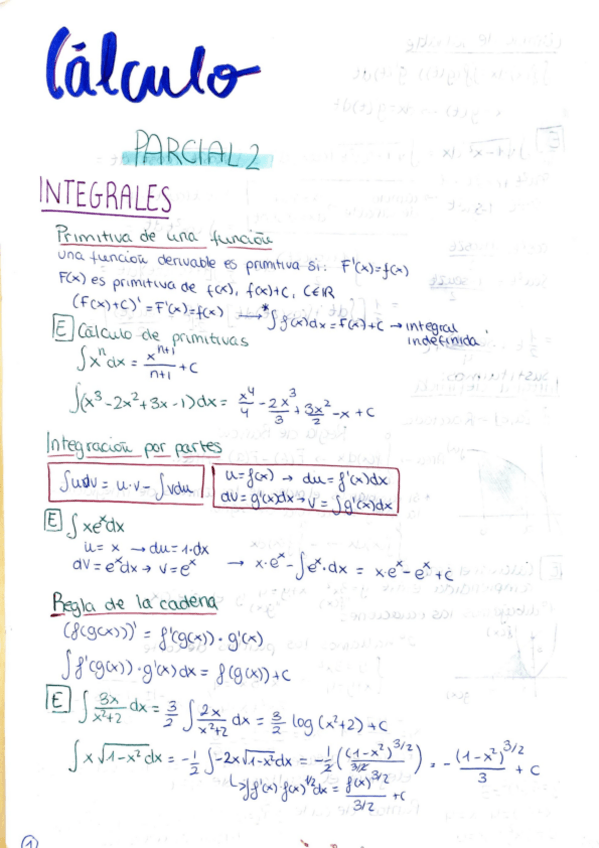 Cálculo
PARCIAL 2
INTEGRALES
Primitiva de una función
una función derivable es primitiva si: F'(x)=f(x)
F(x) es primitiva de f(x), f(x)+C, C∈IR
(F(x)+C)' = F'(x)=f(x) → * ∫f(x)dx = F(x)+C → integral indefinida
E Cálculo de primitivas
∫xⁿdx = xⁿ⁺¹/n+1 + C
∫(x³-2x²+3x-1)dx = x⁴/4 - 2x³/3 + 3x²/2 - x + C
Integración por partes
∫udv = u·v - ∫vdu
u=f(x) → du=f'(x)dx
dv=g'(x)dx → v=∫g'(x)dx
E ∫xeˣdx
u=x → du=1·dx
dv=eˣdx → v=eˣ → x·eˣ - ∫eˣ·dx = x·eˣ - eˣ + C
Regla de la cadena
(f(g(x)))' = f'(g(x))·g'(x)
∫f'(g(x))·g'(x)dx = f(g(x))+C
E ∫3x/x²+2 dx = 3/2 ∫2x/x²+2 dx = 3/2 log(x²+2)+C
∫x√1-x² dx = -1/2 ∫-2x√1-x² dx = -1/2((1-x²)^3/2 / 3/2) = -(1-x²)^3/2 / 3 + C
↳ ∫f'(x)·f(x)^1/2 dx = f(x)^3/2 / 3/2 + C
1